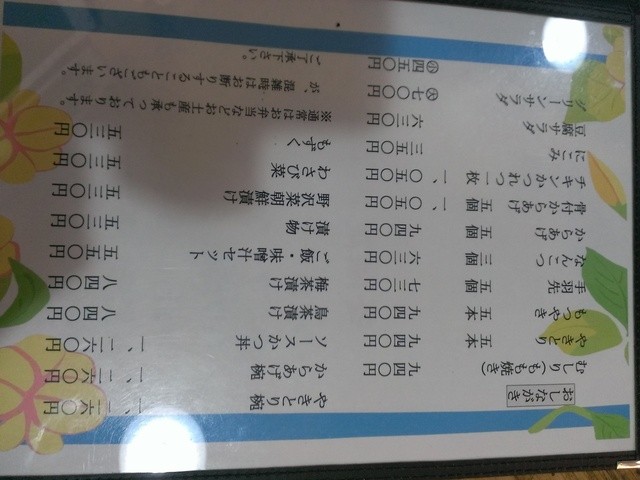 おしながき
むしり(もも焼き) 九四〇円
やきとり 五本 九四〇円
もつやき 五本 九四〇円
手羽先 五個 七三〇円
なんこつ 三個 六三〇円
からあげ 五個 九四〇円
骨付からあげ 五個 一、〇五〇円
チキンかつれつ 一枚 一、〇五〇円
にこみ 三五〇円
豆腐サラダ 六三〇円
グリーンサラダ 大 七〇〇円
小 四五〇円
やきとり椀 一、二六〇円
からあげ椀 一、二六〇円
ソースかつ丼 一、二六〇円
鳥茶漬け 八四〇円
梅茶漬け 八四〇円
ご飯・味噌汁セット 五五〇円
漬け物 五三〇円
野沢菜朝鮮漬け 五三〇円
わさび菜 五三〇円
もずく 五三〇円
※通常はお弁当などお土産も承っております。
が、混雑時はお断りすることもございます。
ご了承下さい。